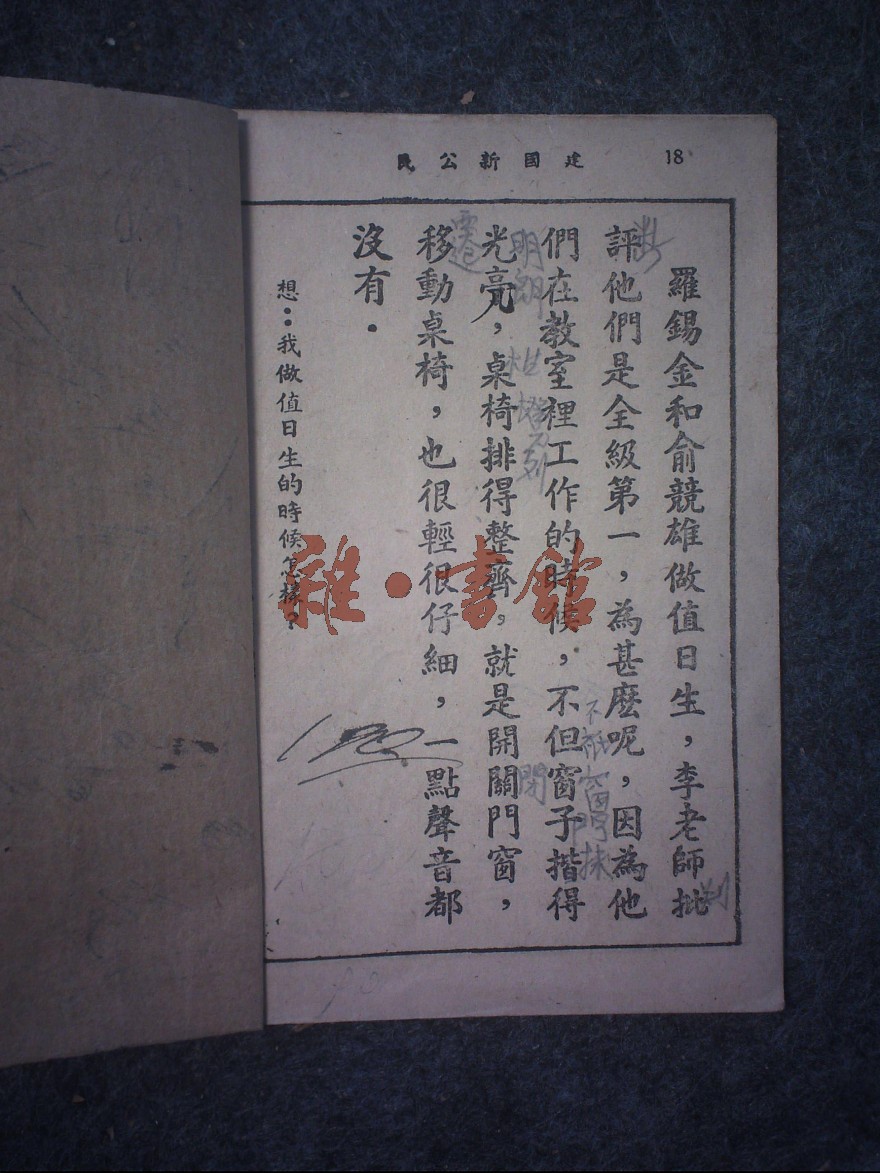 建國新公民
18
羅錫金和俞競雄做值日生，李老師批
評他們是全級第一，為甚麽呢，因為他
們在教室裡工作的時候，不但窗子揩得
光亮，桌椅排得整齊，就是開關門窗，
移動桌椅，也很輕很仔細，一點聲音都
沒有．
想：我做值日生的時候怎樣？
判
斷
不祗窗門抹
明朗
閉
遷
雜·書館